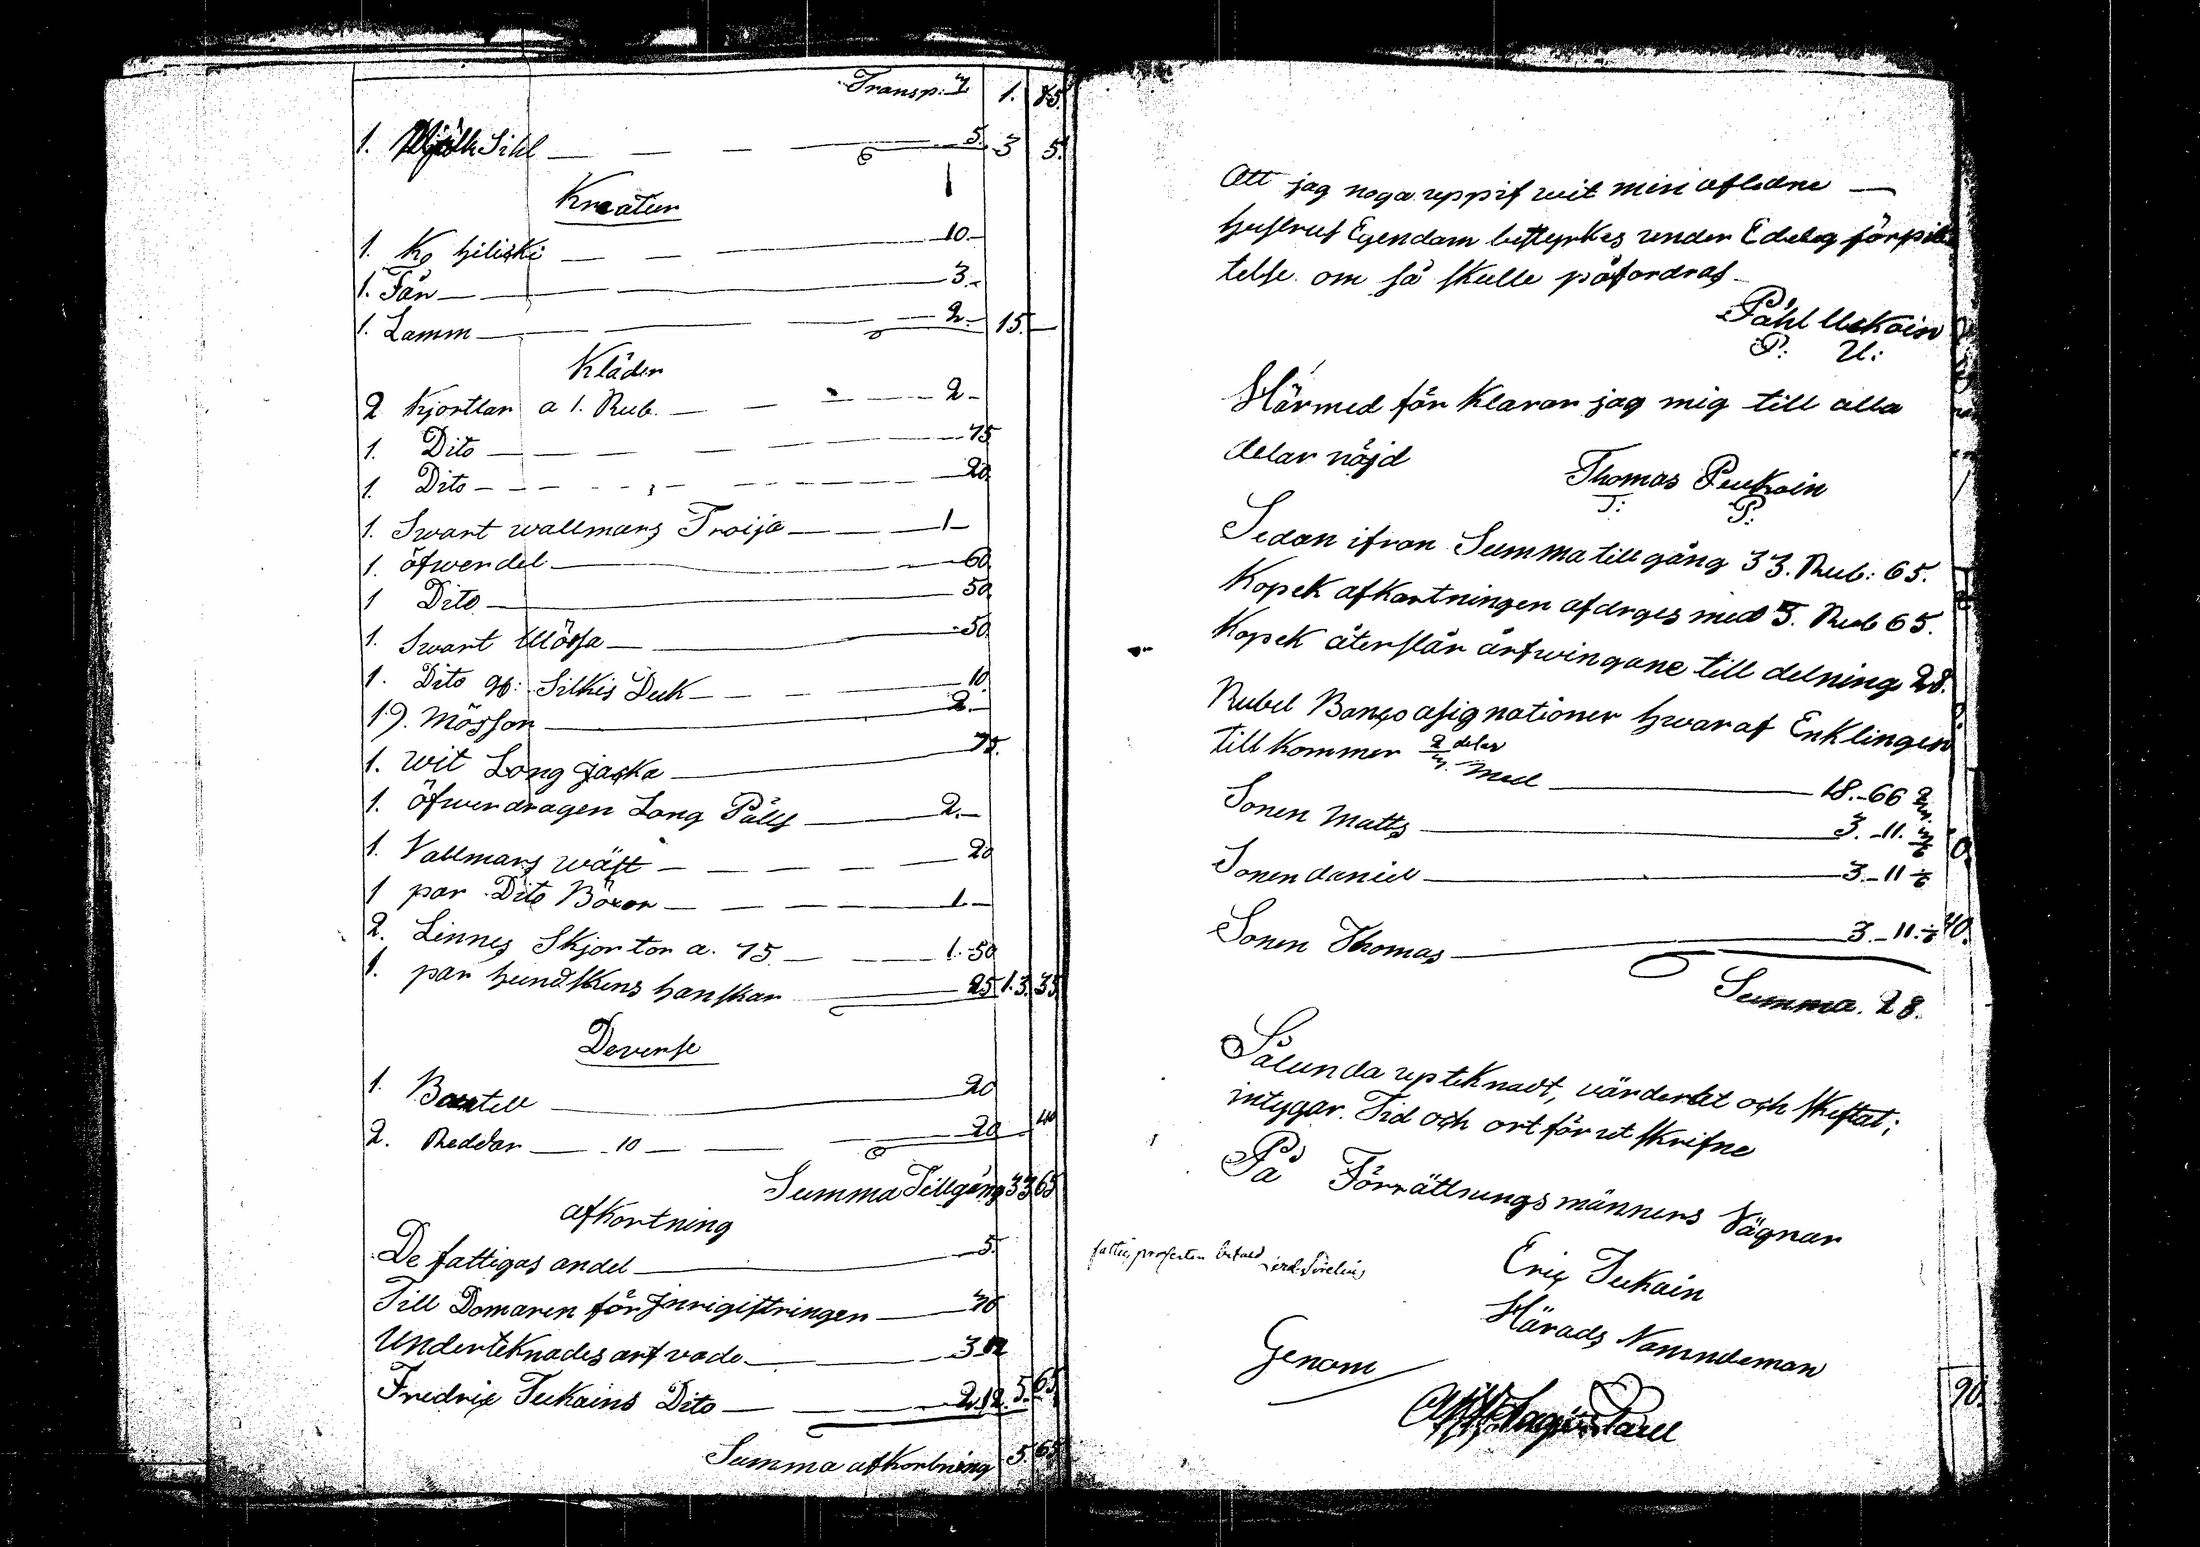 Transp. 1. 75.
1. Mjölk Sihl — — — 5. 3 5.
Kreatur
1. Ko hiliski — — — 10.—
1. Får — 3.—
1. Lamm — — — 2.— 15.—
Kläder
2 Kjortlar a 1. Rub. — — — 2—
1. Dito — — — 75.
1. Dito — — — 20.
1. Swart wallmans Troija — — 1—
1. öfwerdel — 60.
1 Dito — 50.
1. Swart Mössa — 50.
1. Dito Silkis Duk — — 10.
19. Mössor — 2.—
1. wit Long jacka — 75.
1. öfwerdragen Long Päls — 2.—
1. Vallmans wäst — — — 20
1 par Dito Böxor — — — 1.—
2. Linnes Skjortor a. 75 — — 1.50
1. par hundskins hanskar — 25 13. 35
Deverse
1. Boutell — 20
2. Reddar — 10 — — 20 40
Summa Tillgång 33 65
afkortning
De fattigas andel — 5.
Till Domaren för Inrigistringen — 36
Underteknades arfvode — 3.12
Fredric Tukains Dito — — 2.12. 5. 65.
Summa afkortning 5. 65
Att jag noga uppgifwit min aflidne —
hustrus Egendom bettyrkes under Edelig förpik
telse om så skulle påfordras.
Påhl Ukkoin
P: U:
Härmed för klarar jag mig till alla
delar nöjd
Thomas Peukoin
T: P:
Sedan ifron Summa till gång 33. Rub: 65.
Kopek afkortningen afdrges med 5. Rub 65.
Kopek återstår arfwingane till delning 28.
Rubel Banco asignationer hwaraf Enklingen
till kommer 2/3 delar med — 18.—66 2/3.
Sonen Matts — 3.—11. 1/6
Sonen daniel — 3.—11 1/6
Sonen Thomas — 3.—11. 1/6
Summa. 28.
Sålunda uptiknadt, värderat och skiftat;
intygar. Tid och ort förutskrifne
På Förrättnings männers Vägnar
Eric Tukain
Härads Nämndeman
Genom